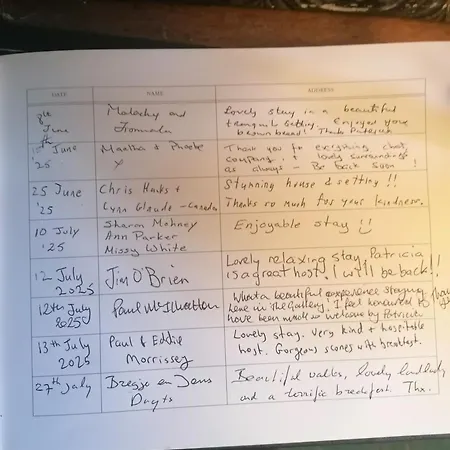 DATE NAME ADDRESS
8th June Malachy and Lovely stay in a beautiful
tranquil setting. Enjoyed your
brown bread! Thanks Patricia
15th June '25 Martha & Phoebe x Thank you for everything chat,
company, + lovely surroundings
as always - Be back soon!
25 June '25 Chris Hanks + Stunning house & setting!!
Lynn Glaude - Canada Thanks so much for your kindness.
10 July '25 Sharon Mohney Enjoyable stay
Ann Parker
Missy White
12 July 2025 Jim O'Brien Lovely relaxing stay Patricia
is a great host. I will be back!!
12th July 2025 Paul What a beautiful experience staying
here in the Gallery. I feel honoured to
have been made so welcome by Patricia
13th July 2025 Paul & Eddie Lovely stay. Very kind + hospitable
Morrissey host. Gorgeous scones with breakfast.
27th July Bregje en Jens Beautiful walks, lovely landlady
and a terrific breakfast. Thx.